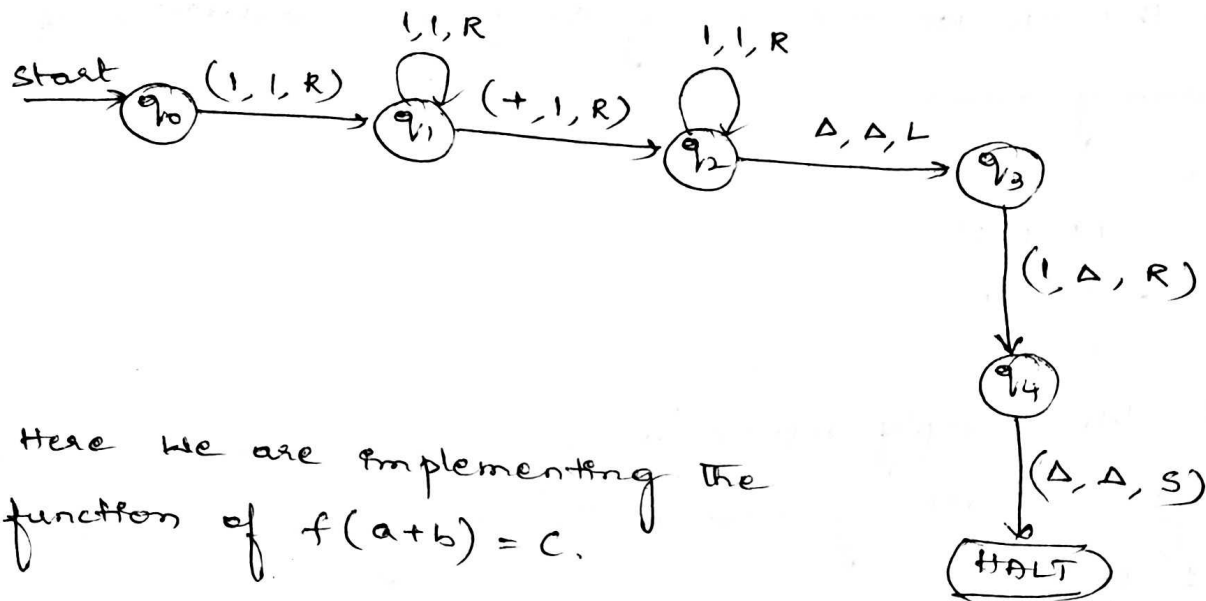 1, 1, R
1, 1, R
Start
q0
(1, 1, R)
q1
(+, 1, R)
q2
Δ, Δ, L
q3
(1, Δ, R)
q4
(Δ, Δ, S)
HALT
Here we are implementing the
function of f(a+b) = C.